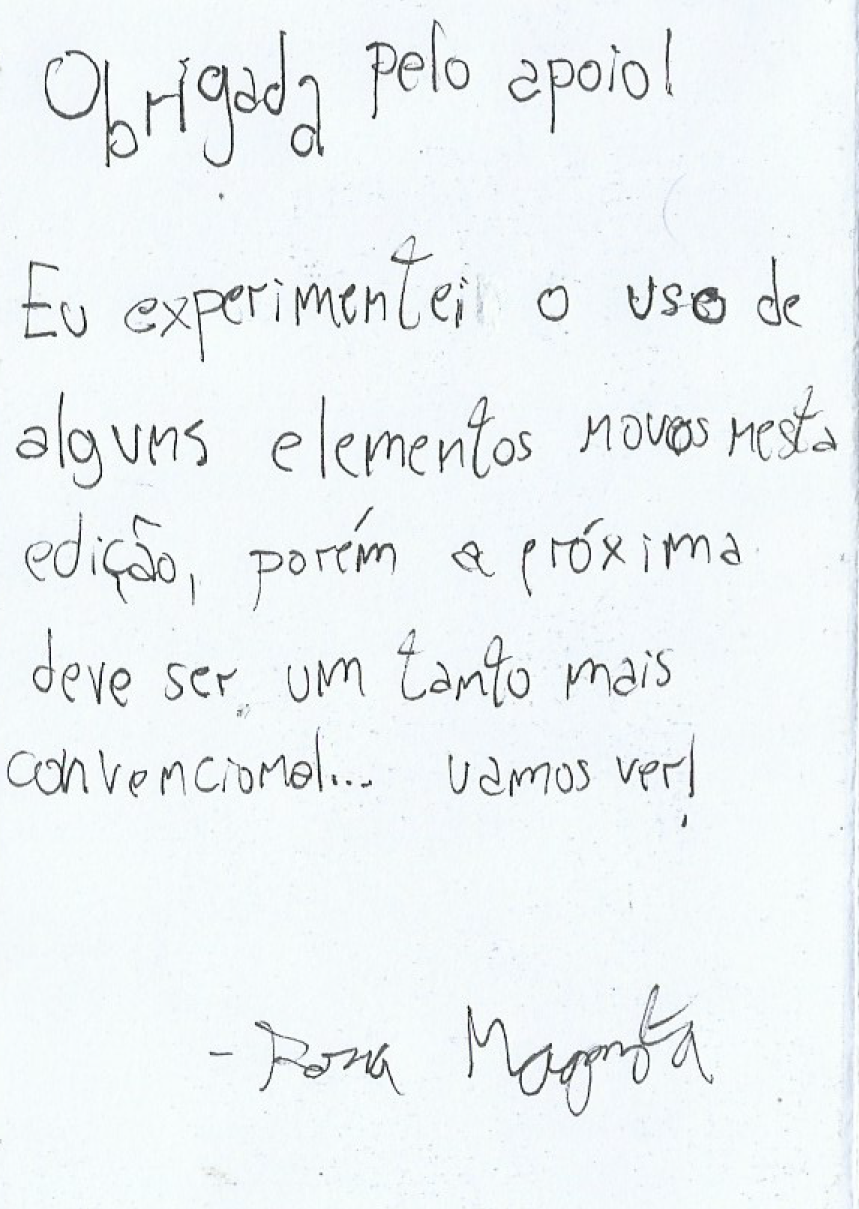 Obrigada pelo apoio!
Eu experimentei o uso de
alguns elementos novos nesta
edição, porém a próxima
deve ser um tanto mais
convencional... vamos ver!
- Rosa Magenta